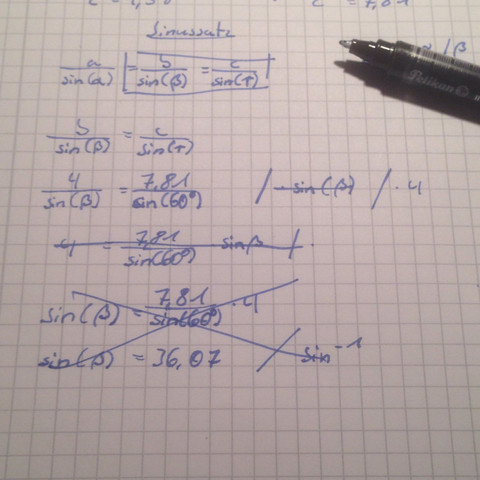 c = 7,81
Sinussatz
a/sin(α) = b/sin(β) = c/sin(γ)
/ β
Pelikan
b/sin(β) = c/sin(γ)
4/sin(β) = 7,81/sin(60°) / · sin(β) / · 4
4 = 7,81/sin(60°) · sin β / ·
sin(β) = 7,81/sin(60°) · 4
sin(β) = 36,07 / sin⁻¹